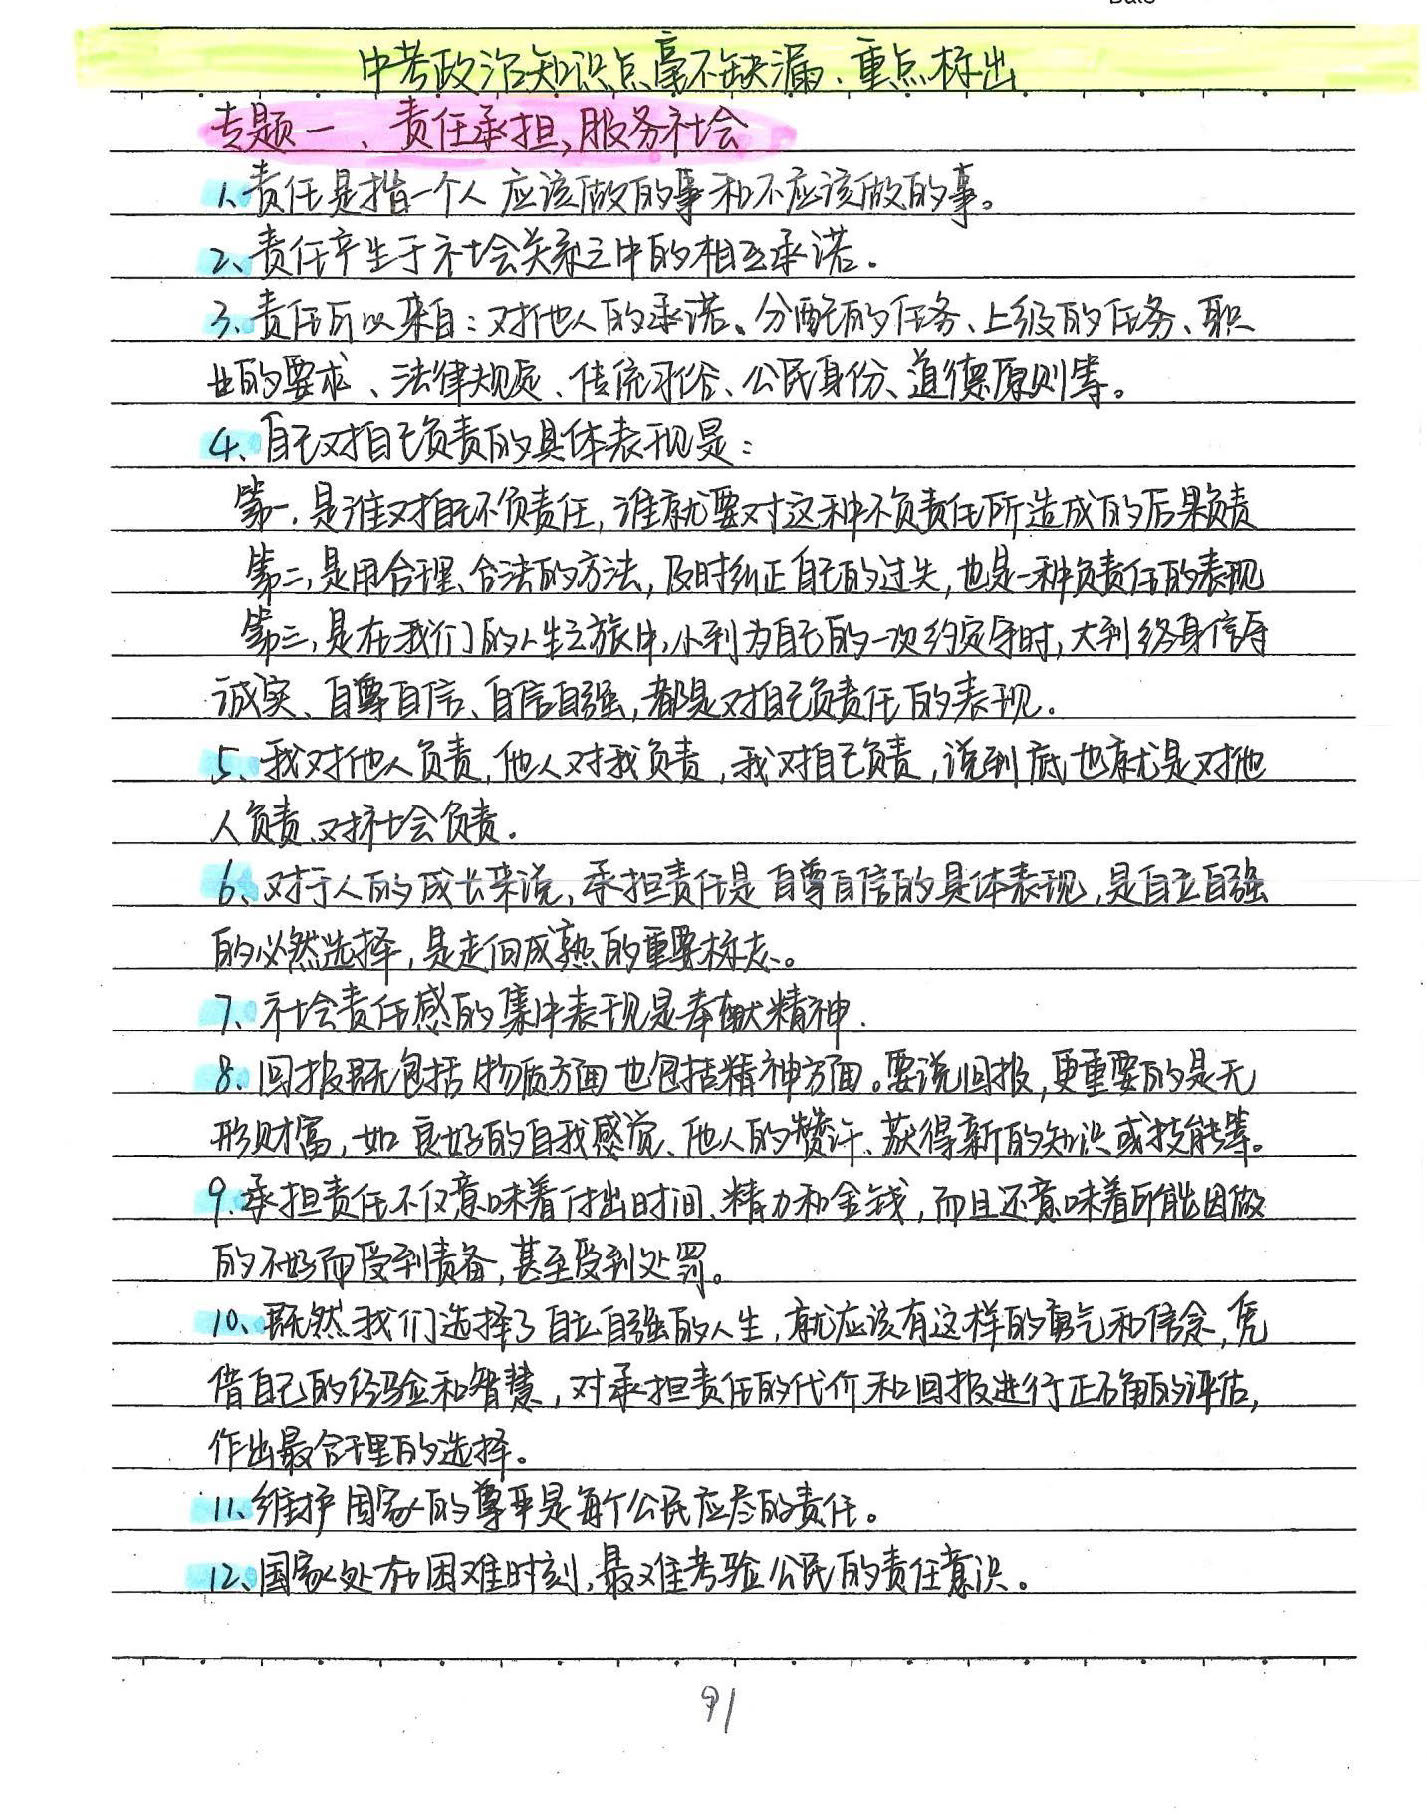 中考政治知识点毫不缺漏、重点标出
专题一、责任承担,服务社会
1、责任是指一个人应该做的事和不应该做的事。
2、责任产生于社会关系之中的相互承诺.
3、责任可以来自:对他人的承诺、分配的任务、上级的任务、职
业的要求、法律规定、传统习俗、公民身份、道德原则等。
4、自己对自己负责的具体表现是:
第一,是谁对自己不负责任,谁就要对这种不负责任所造成的后果负责
第二,是用合理、合法的方法,及时纠正自己的过失,也是一种负责任的表现
第三,是在我们的人生之旅中,小到为自己的一次约定守时,大到终身信守
诚实、自尊自信、自信自强,都是对自己负责任的表现.
5、我对他人负责,他人对我负责,我对自己负责,说到底也就是对他
人负责、对社会负责.
6、对于人的成长来说,承担责任是自尊自信的具体表现,是自立自强
的必然选择,是走向成熟的重要标志。
7、社会责任感的集中表现是奉献精神.
8、回报既包括物质方面也包括精神方面。要说回报,更重要的是无
形财富,如良好的自我感觉、他人的赞许、获得新的知识或技能等。
9、承担责任不仅意味着付出时间、精力和金钱,而且还意味着可能因做
的不好而受到责备,甚至受到处罚。
10、既然我们选择了自立自强的人生,就应该有这样的勇气和信念,凭
借自己的经验和智慧,对承担责任的代价和回报进行正确的评估,
作出最合理的选择。
11、维护国家的尊严是每个公民应尽的责任。
12、国家处在困难时刻,最难考验公民的责任意识。
91